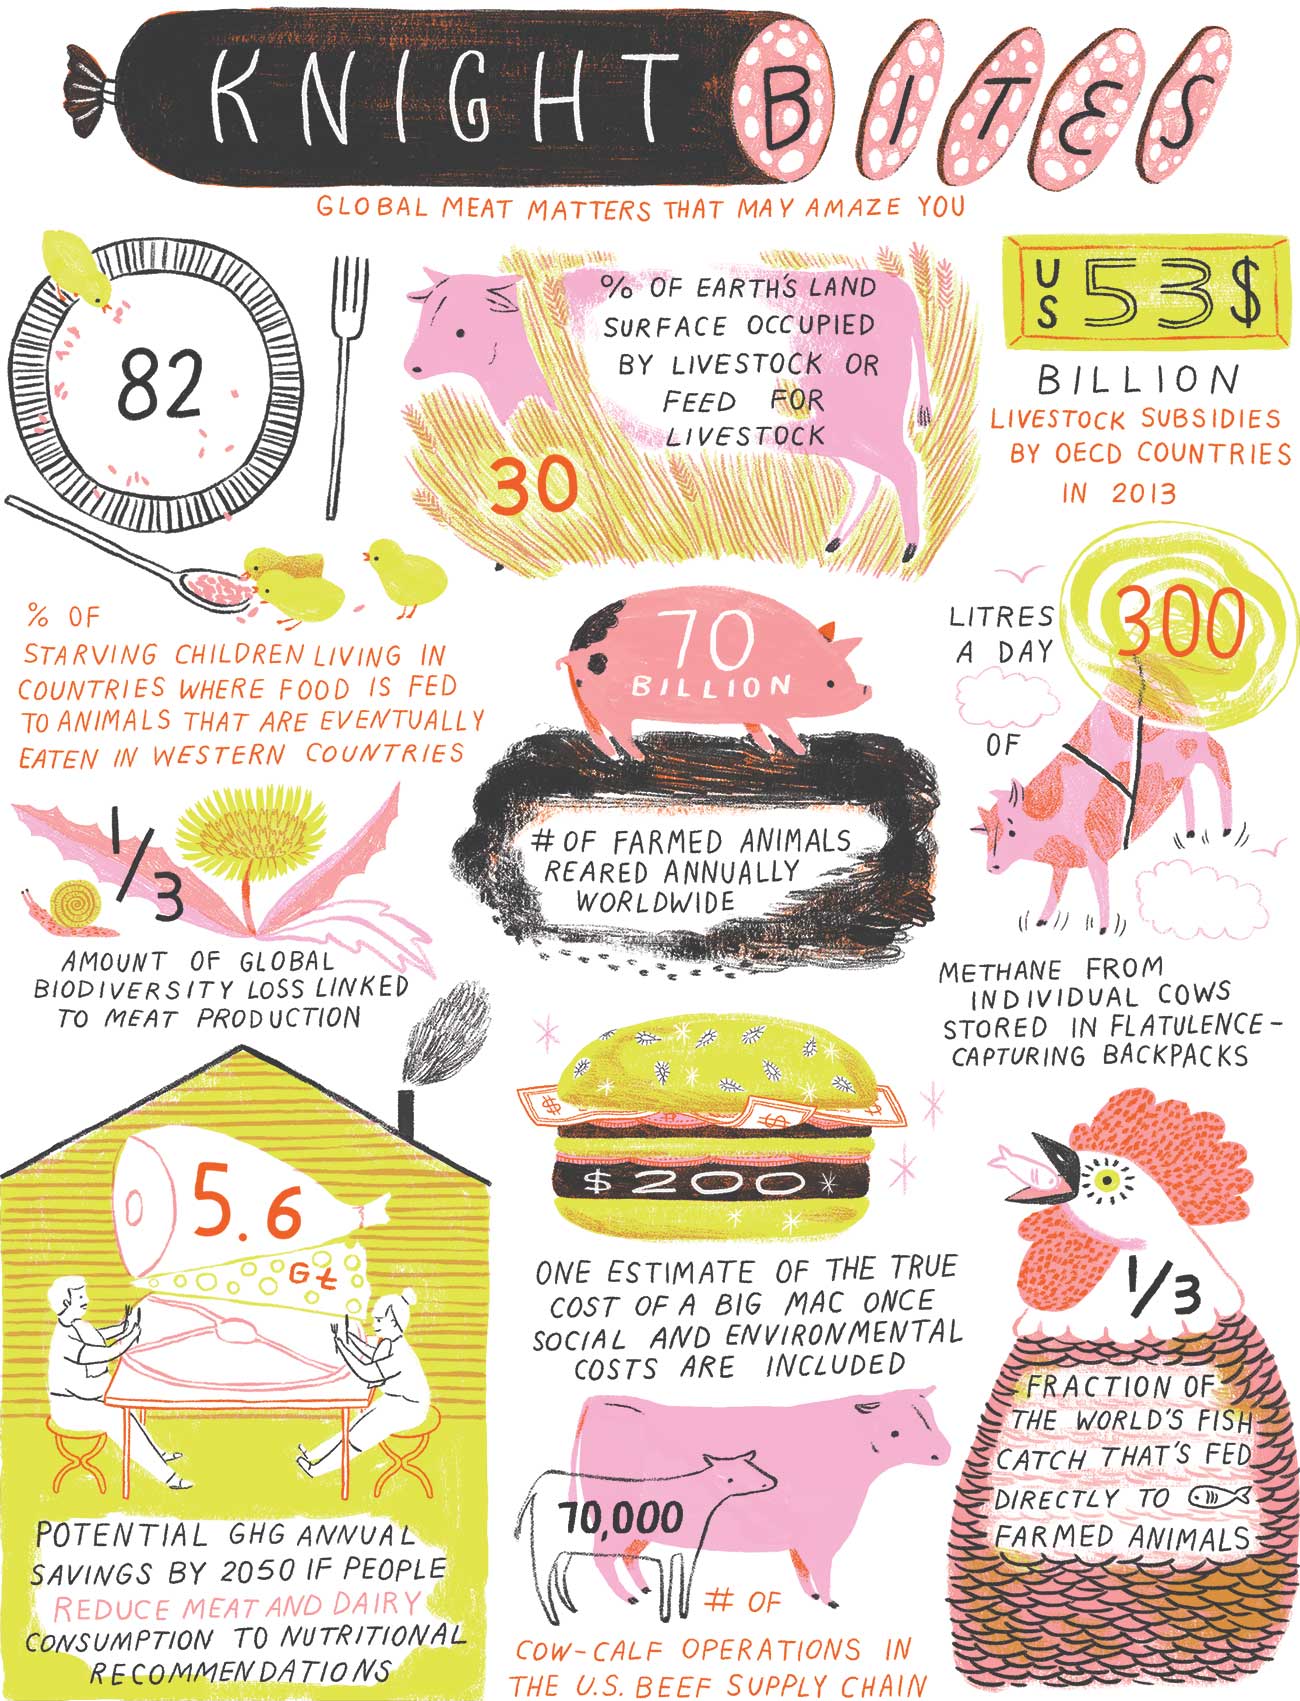 KNIGHT BITES
GLOBAL MEAT MATTERS THAT MAY AMAZE YOU
82
% OF
STARVING CHILDREN LIVING IN
COUNTRIES WHERE FOOD IS FED
TO ANIMALS THAT ARE EVENTUALLY
EATEN IN WESTERN COUNTRIES
% OF EARTH'S LAND
SURFACE OCCUPIED
BY LIVESTOCK OR
FEED FOR
LIVESTOCK
30
US 53$
BILLION
LIVESTOCK SUBSIDIES
BY OECD COUNTRIES
IN 2013
70
BILLION
# OF FARMED ANIMALS
REARED ANNUALLY
WORLDWIDE
300
LITRES
A DAY
OF
METHANE FROM
INDIVIDUAL COWS
STORED IN FLATULENCE-
CAPTURING BACKPACKS
1/3
AMOUNT OF GLOBAL
BIODIVERSITY LOSS LINKED
TO MEAT PRODUCTION
5.6
Gt
POTENTIAL GHG ANNUAL
SAVINGS BY 2050 IF PEOPLE
REDUCE MEAT AND DAIRY
CONSUMPTION TO NUTRITIONAL
RECOMMENDATIONS
$ $
$200
ONE ESTIMATE OF THE TRUE
COST OF A BIG MAC ONCE
SOCIAL AND ENVIRONMENTAL
COSTS ARE INCLUDED
70,000
# OF
COW-CALF OPERATIONS IN
THE U.S. BEEF SUPPLY CHAIN
1/3
FRACTION OF
THE WORLD'S FISH
CATCH THAT'S FED
DIRECTLY TO
FARMED ANIMALS